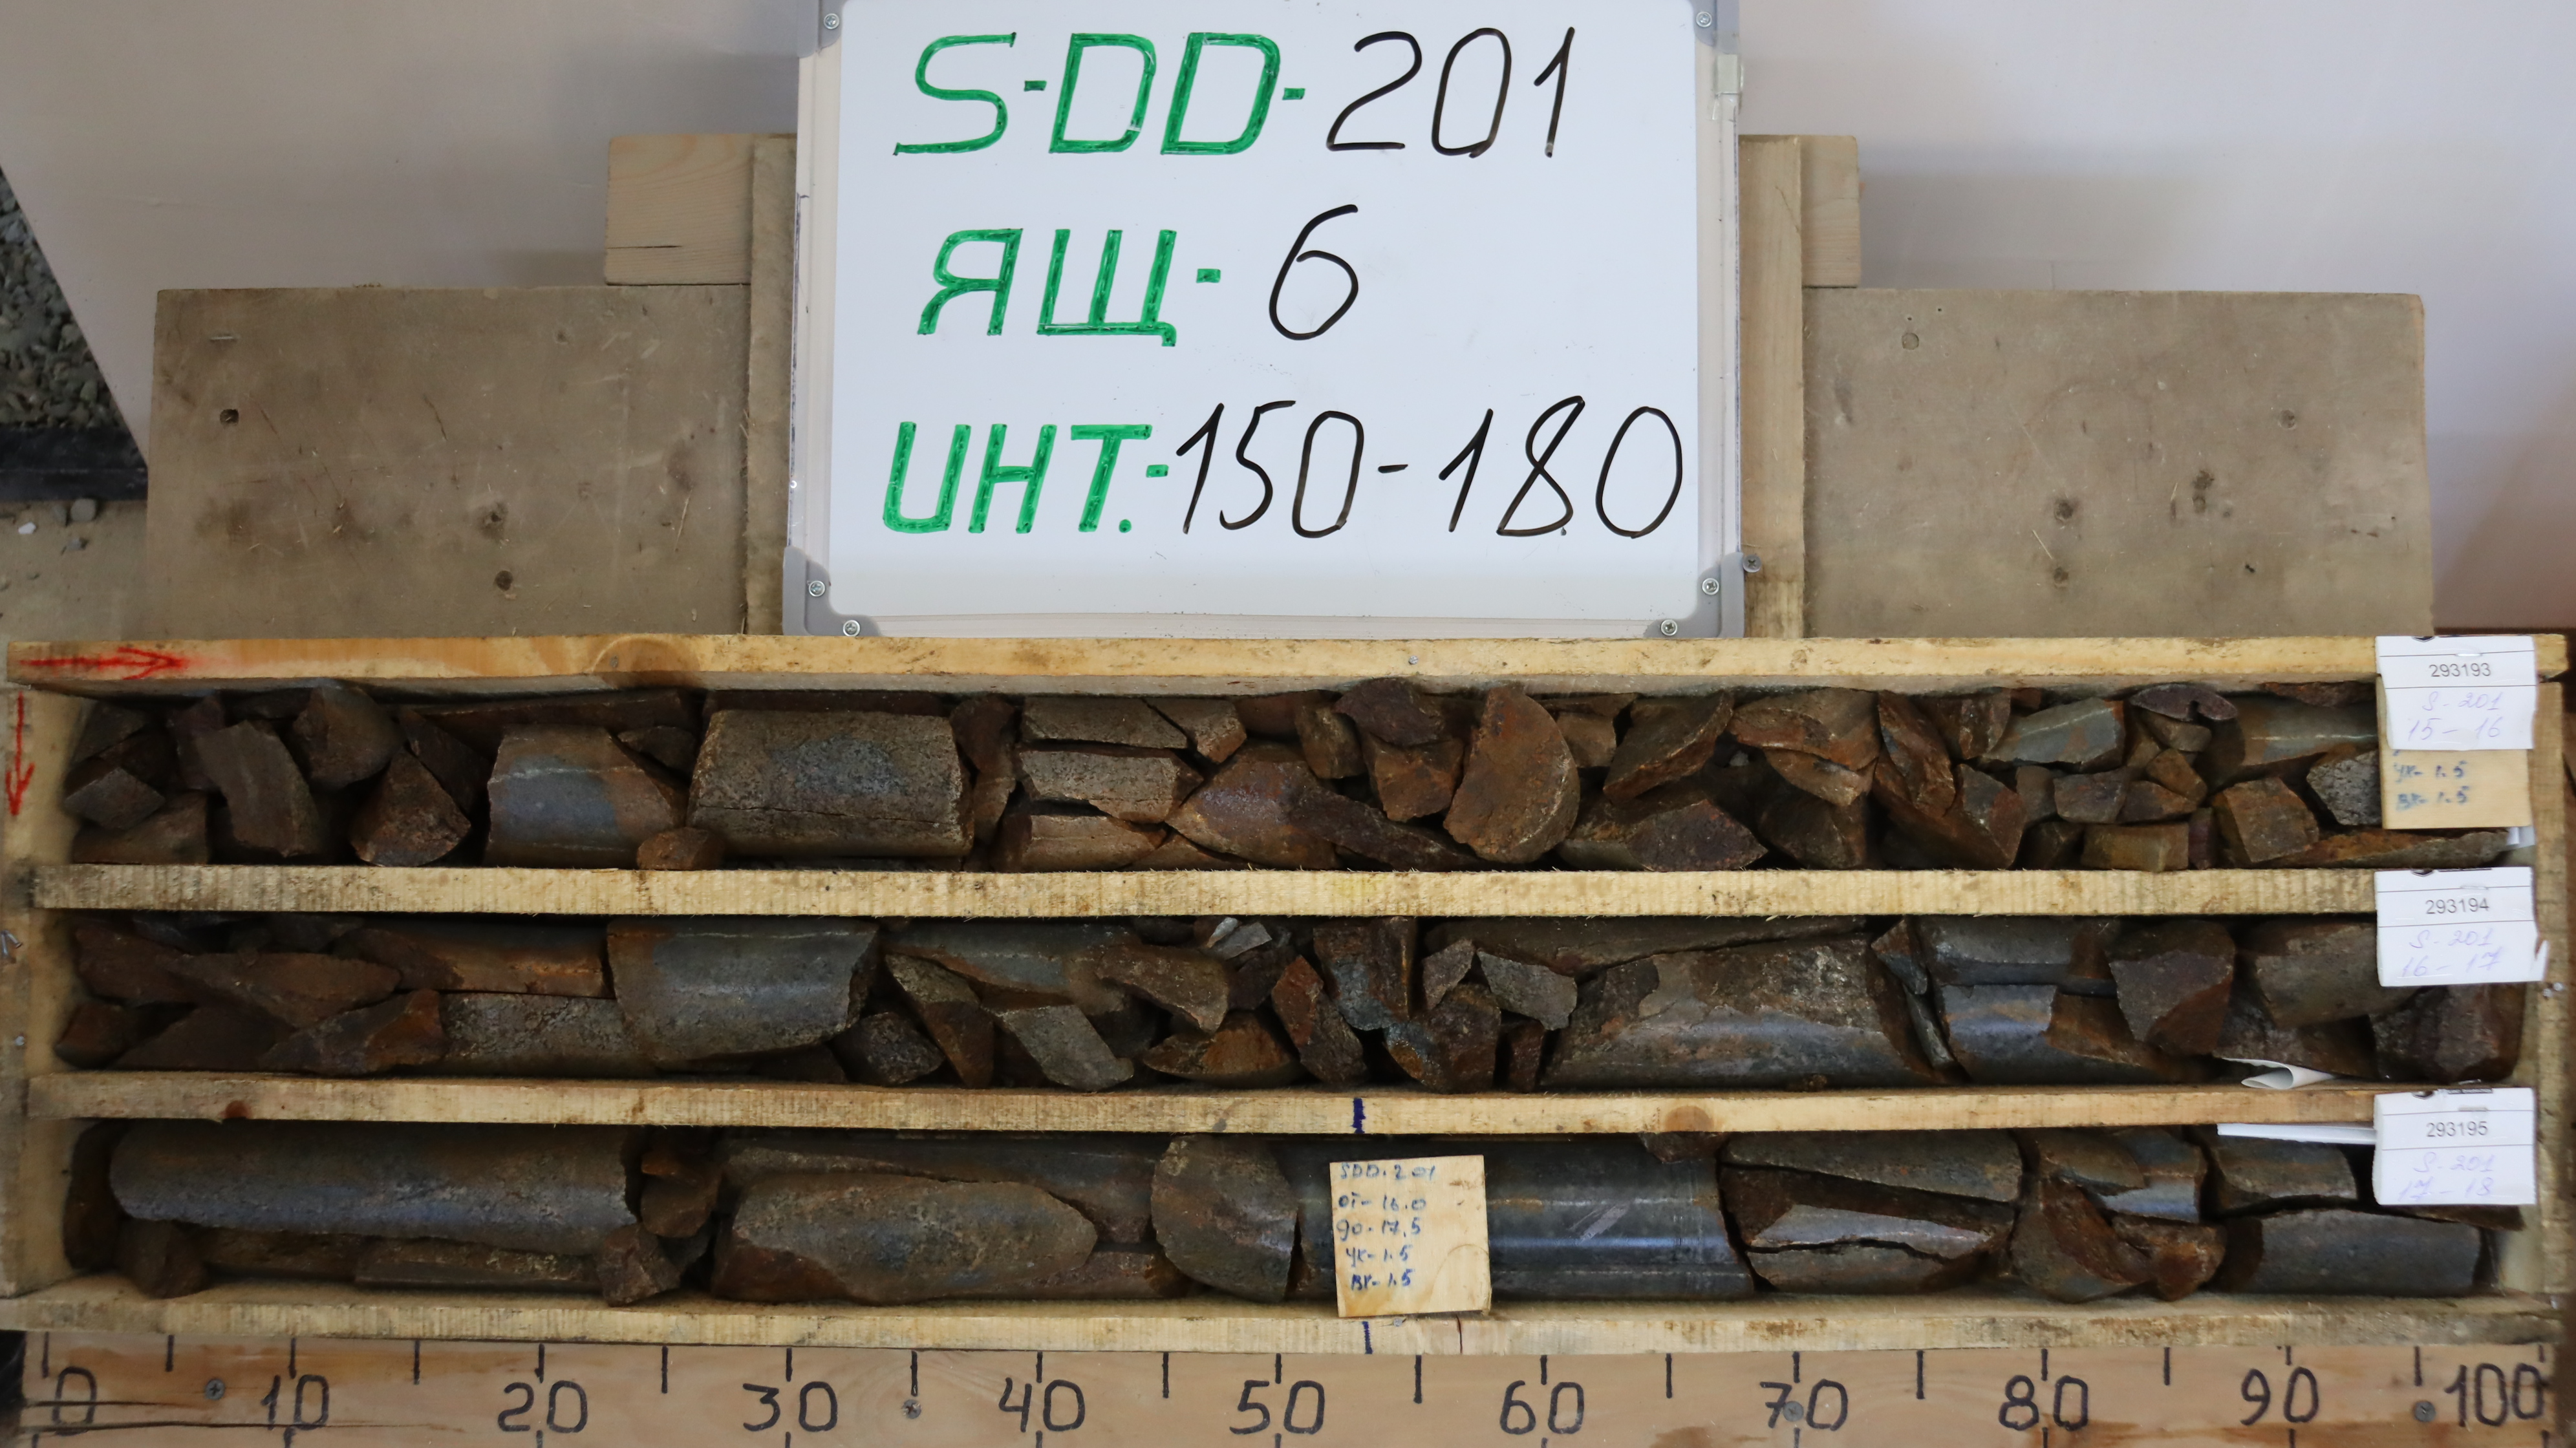 S-DD-201
ЯЩ-6
ИНТ.:-150-180
293193
S-201
15-16
УК-1.5
ВК-1.5
293194
S-201
16-17
293195
S-201
17-18
SDD.201
от-16.0
до-17.5
УК-1.5
ВК-1.5
0 10 20 30 40 50 60 70 80 90 100